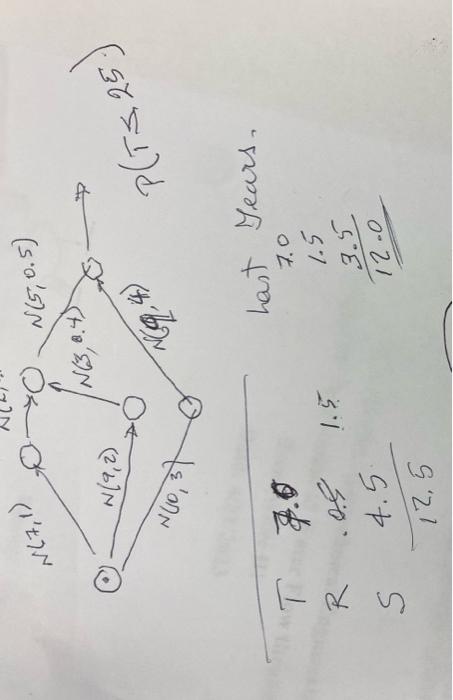 N(7,1)
N(5,0.5)
N(9,2)
N(3,0.4)
N(10,3)
P(T ≤ 25)
Last Years.
T 7.0
R .05 1.5 1.5
S 4.5 3.5
12.5 12.0